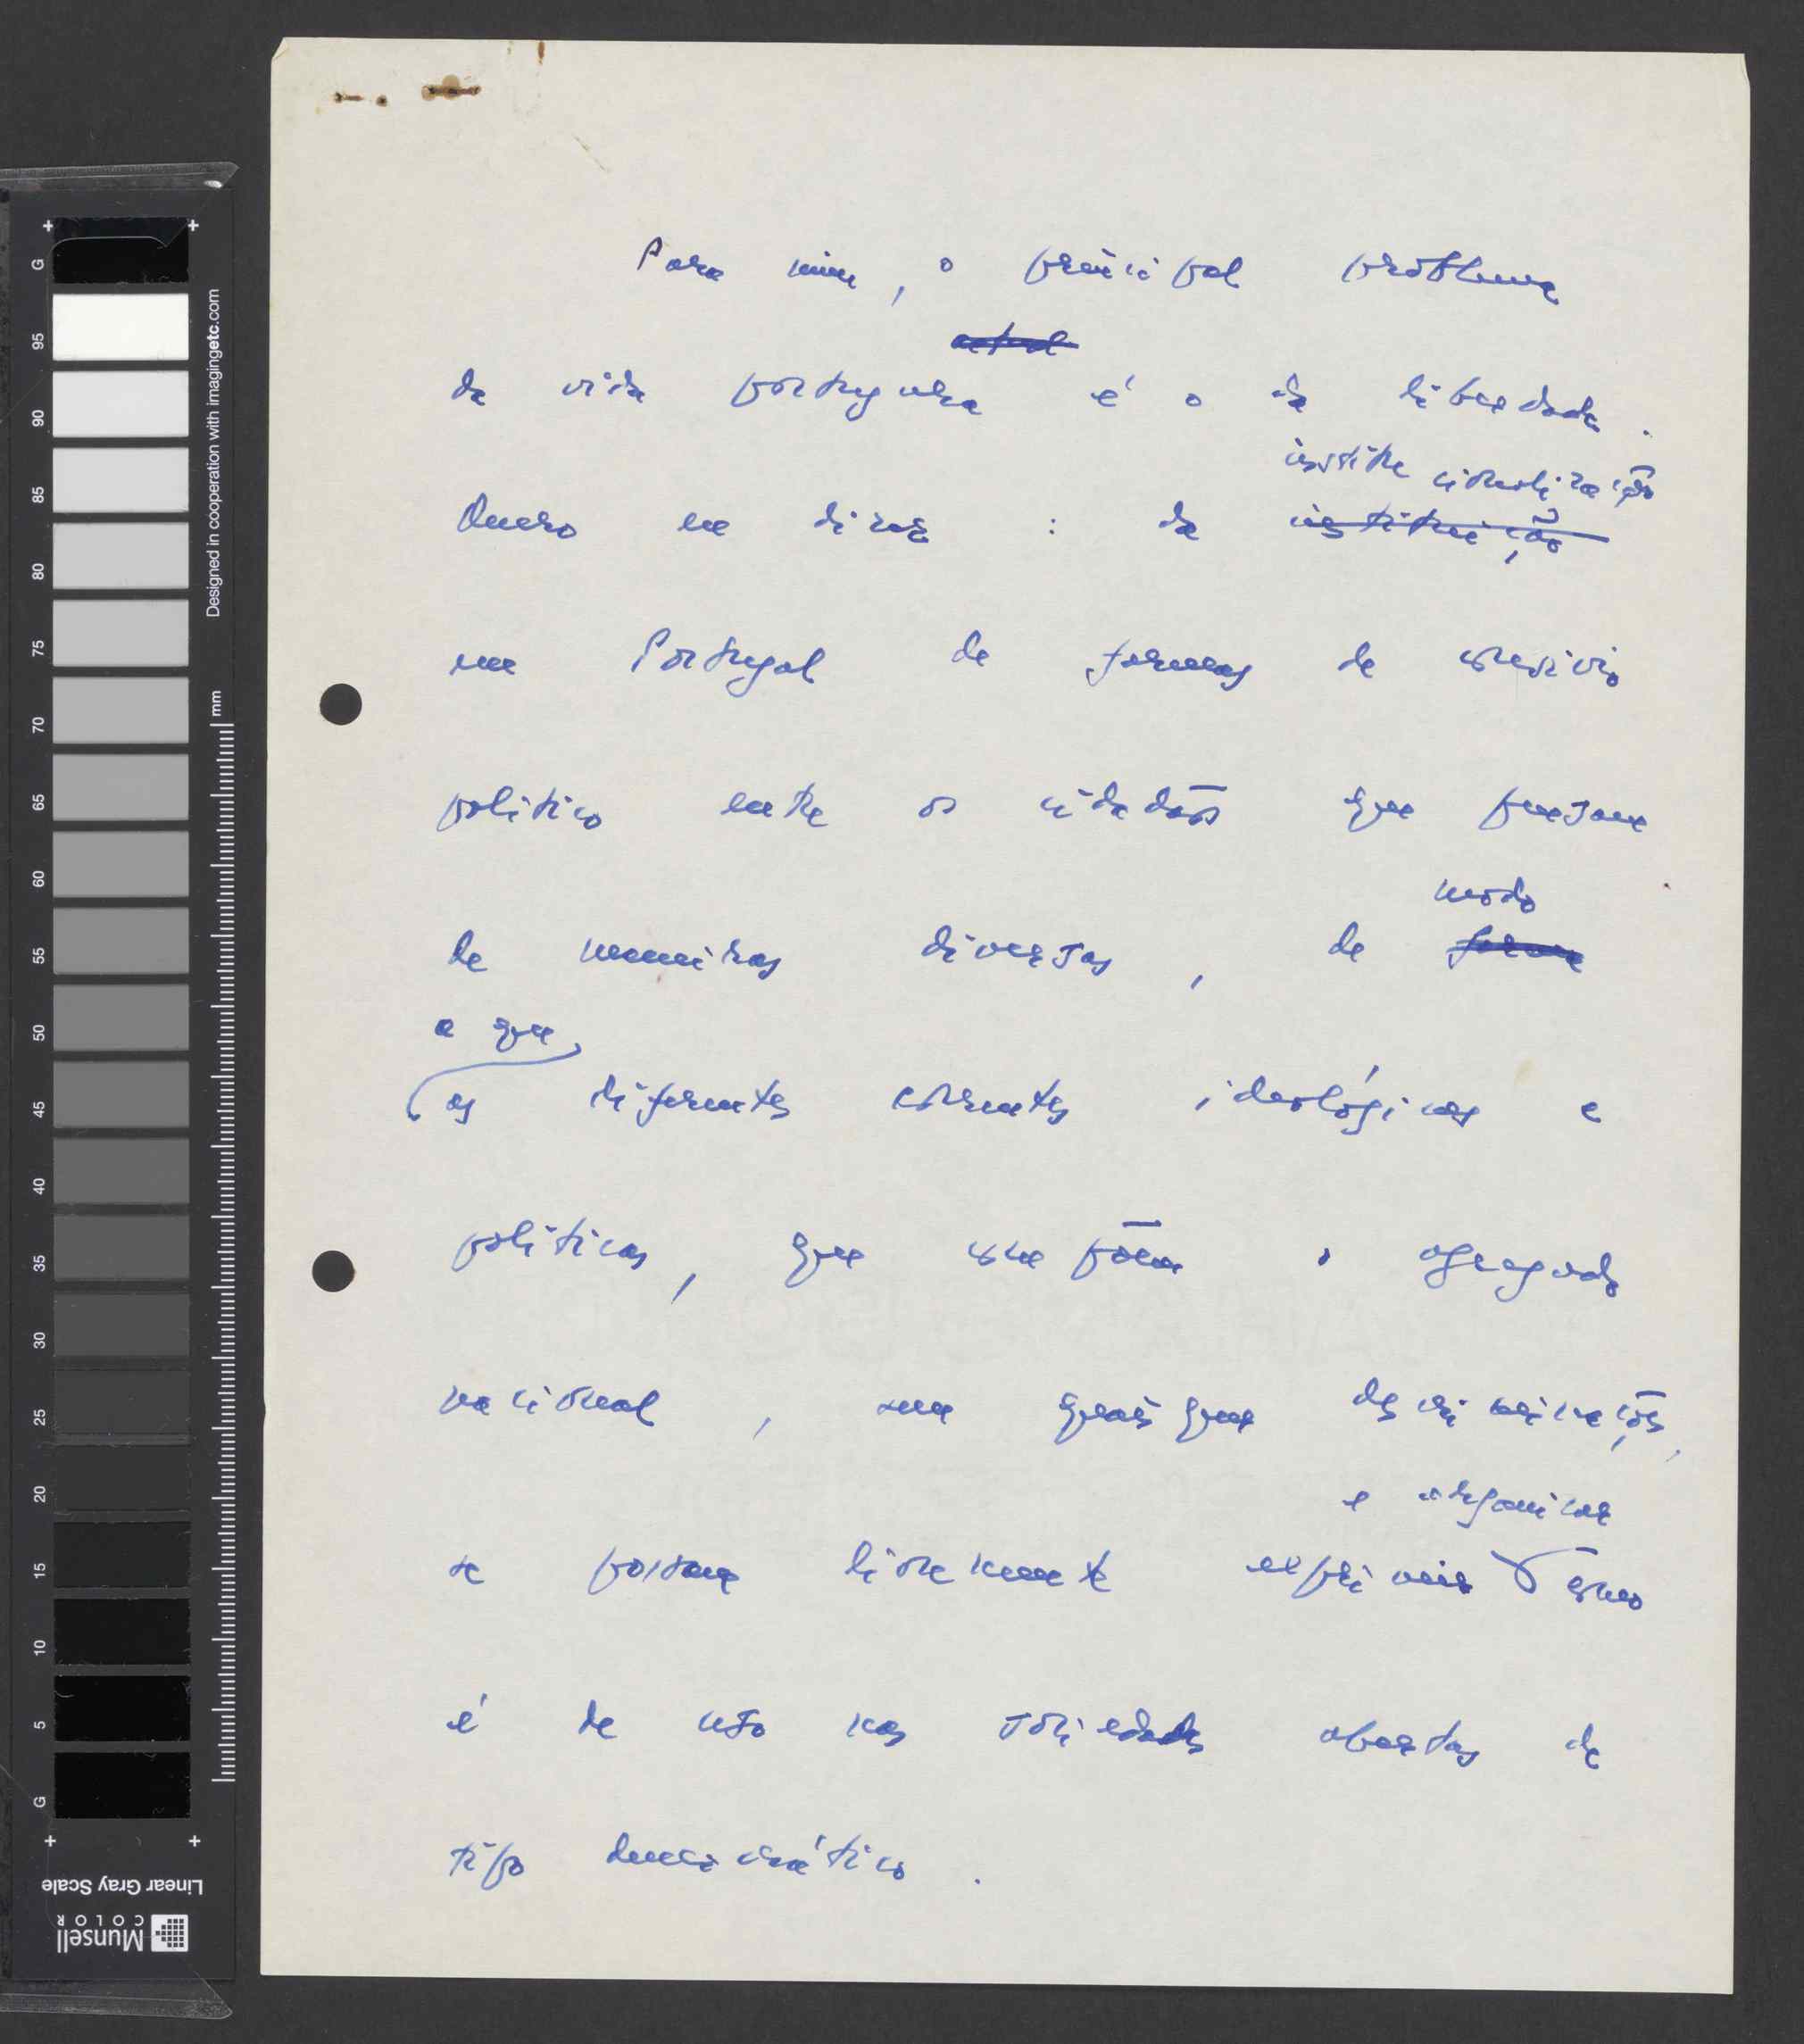 Para mim, o principal problema
actual
da vida portuguesa é o da liberdade.
institucionalização
Quero eu dizer: da instituição
em Portugal de formas de convívio
político entre os cidadãos que pensam
modo
de maneiras diversas, de forma
a que
as diferentes correntes ideológicas e
políticas, que compõem o agregado
nacional, sem quaisquer descriminações,
e organizar
se possam livremente exprimir como
é de uso nas sociedades abertas de
tipo democrático.
G
95
90
85
80
75
70
65
60
55
50
45
40
35
30
25
20
15
10
5
G
mm
Designed in cooperation with imagingetc.com
Linear Gray Scale
Munsell
COLOR